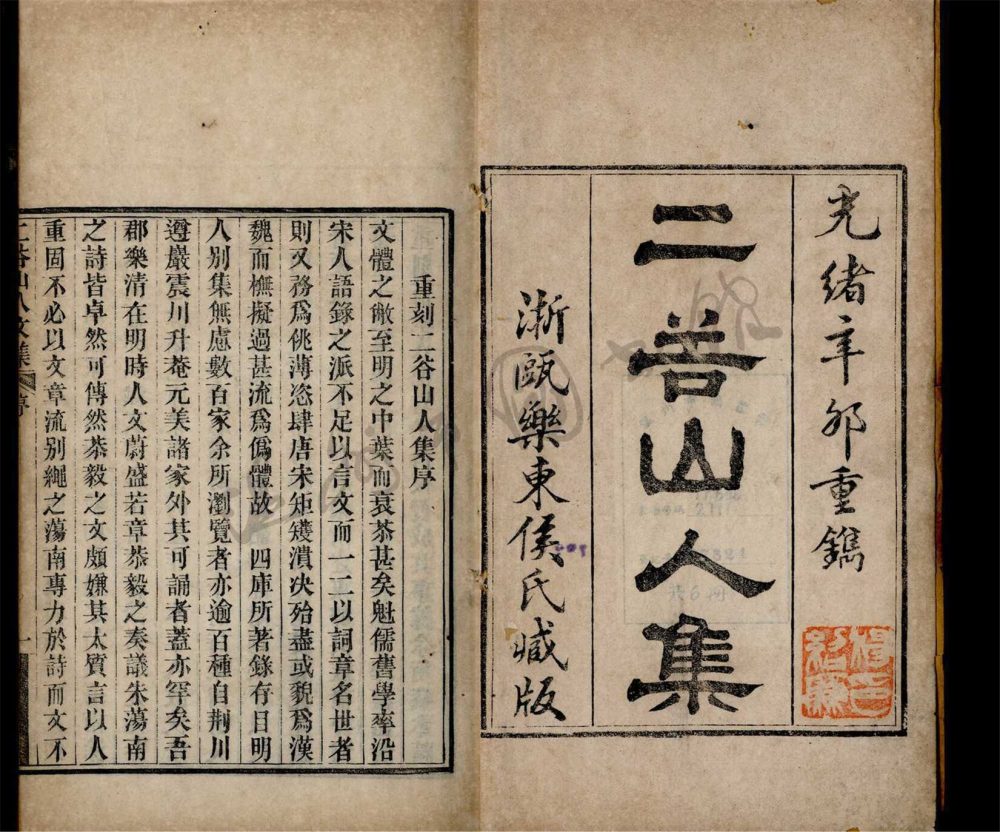 光緒辛卯重鐫
二谷山人集
浙甌樂東侯氏臧版
重刻二谷山人集序
文體之敝至明之中葉而衰苶甚矣魁儒舊學率沿
宋人語錄之派不足以言文而一二以詞章名世者
則又務爲佻薄恣肆唐宋矩矱潰决殆盡或貌爲漢
魏而橅擬過甚流爲僞體故 四庫所著錄存目明
人別集無慮數百家余所瀏覽者亦逾百種自荆川
遵巖震川升菴元美諸家外其可誦者蓋亦罕矣吾
郡樂清在明時人文蔚盛若章恭毅之奏議朱蕩南
之詩皆卓然可傳然恭毅之文頗嫌其太質言以人
重固不必以文章流別繩之蕩南專力於詩而文不
二谷山人文集 序 一